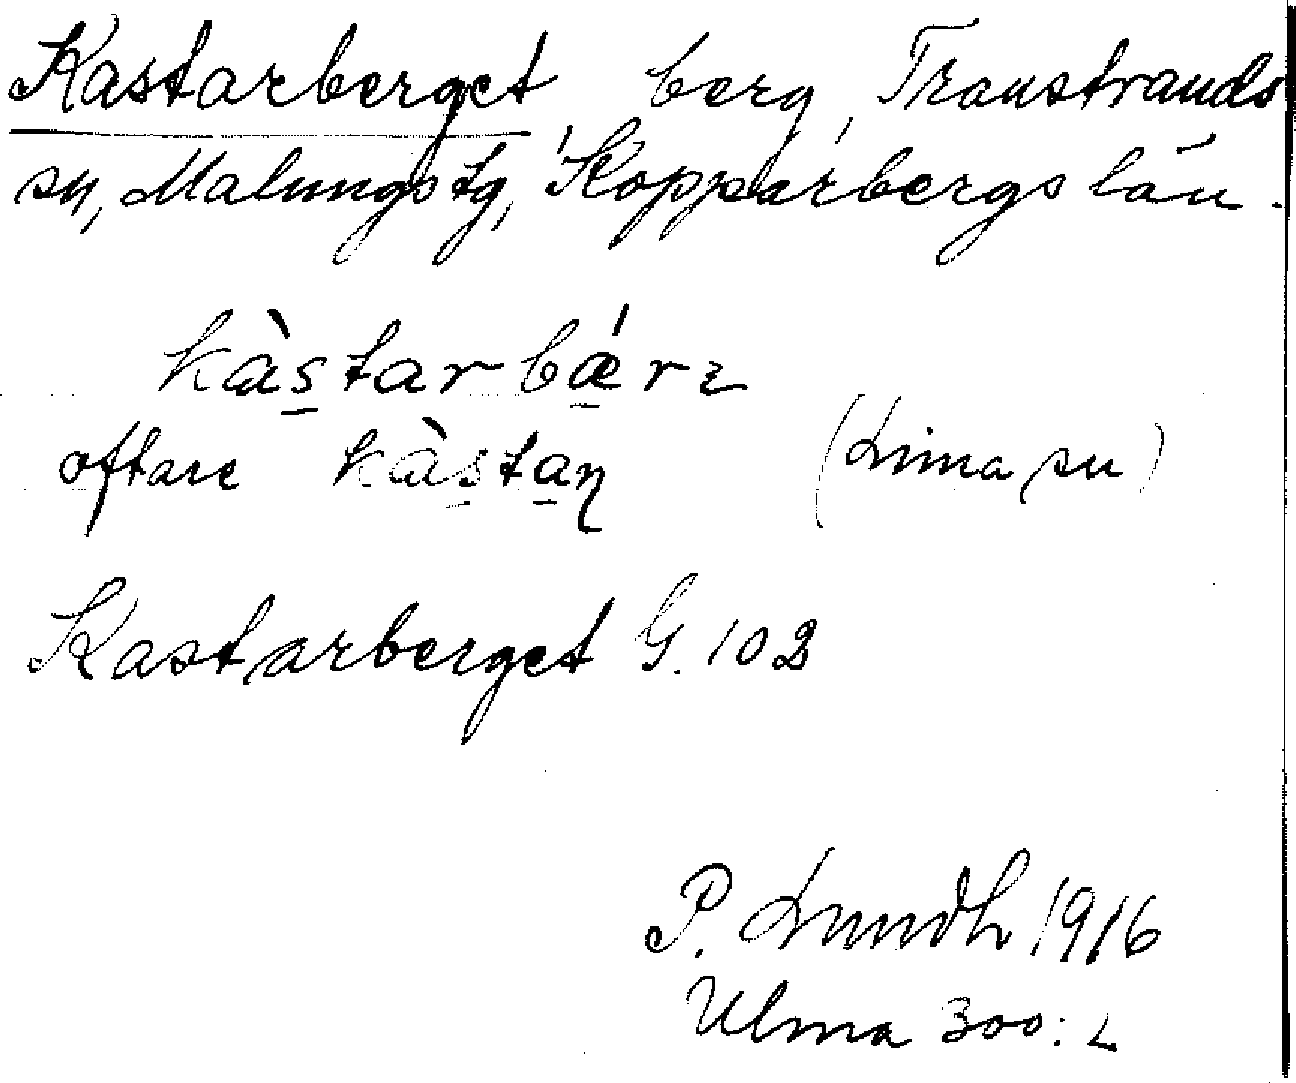 Kastarberget berg, Transtrands
sn, Malungs tg, Kopparbergs län.
kàs̱tarbǽ̱rɛ
oftare kàs̱ta̱ɳ (Lima sn)
Kastarberget G. 102
P. Lundh 1916
Ulma 300:2